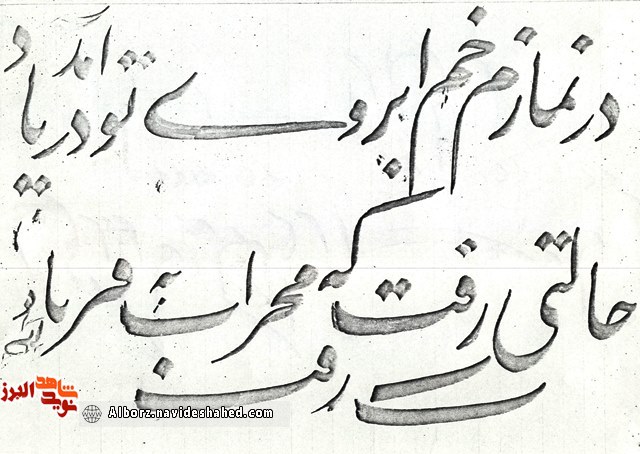 در نمازم خم ابروی تو در یاد آمد
حالتی رفت که محراب به فریاد آمد
رفت
نوید شاهد البرز
Alborz.navideshahed.com